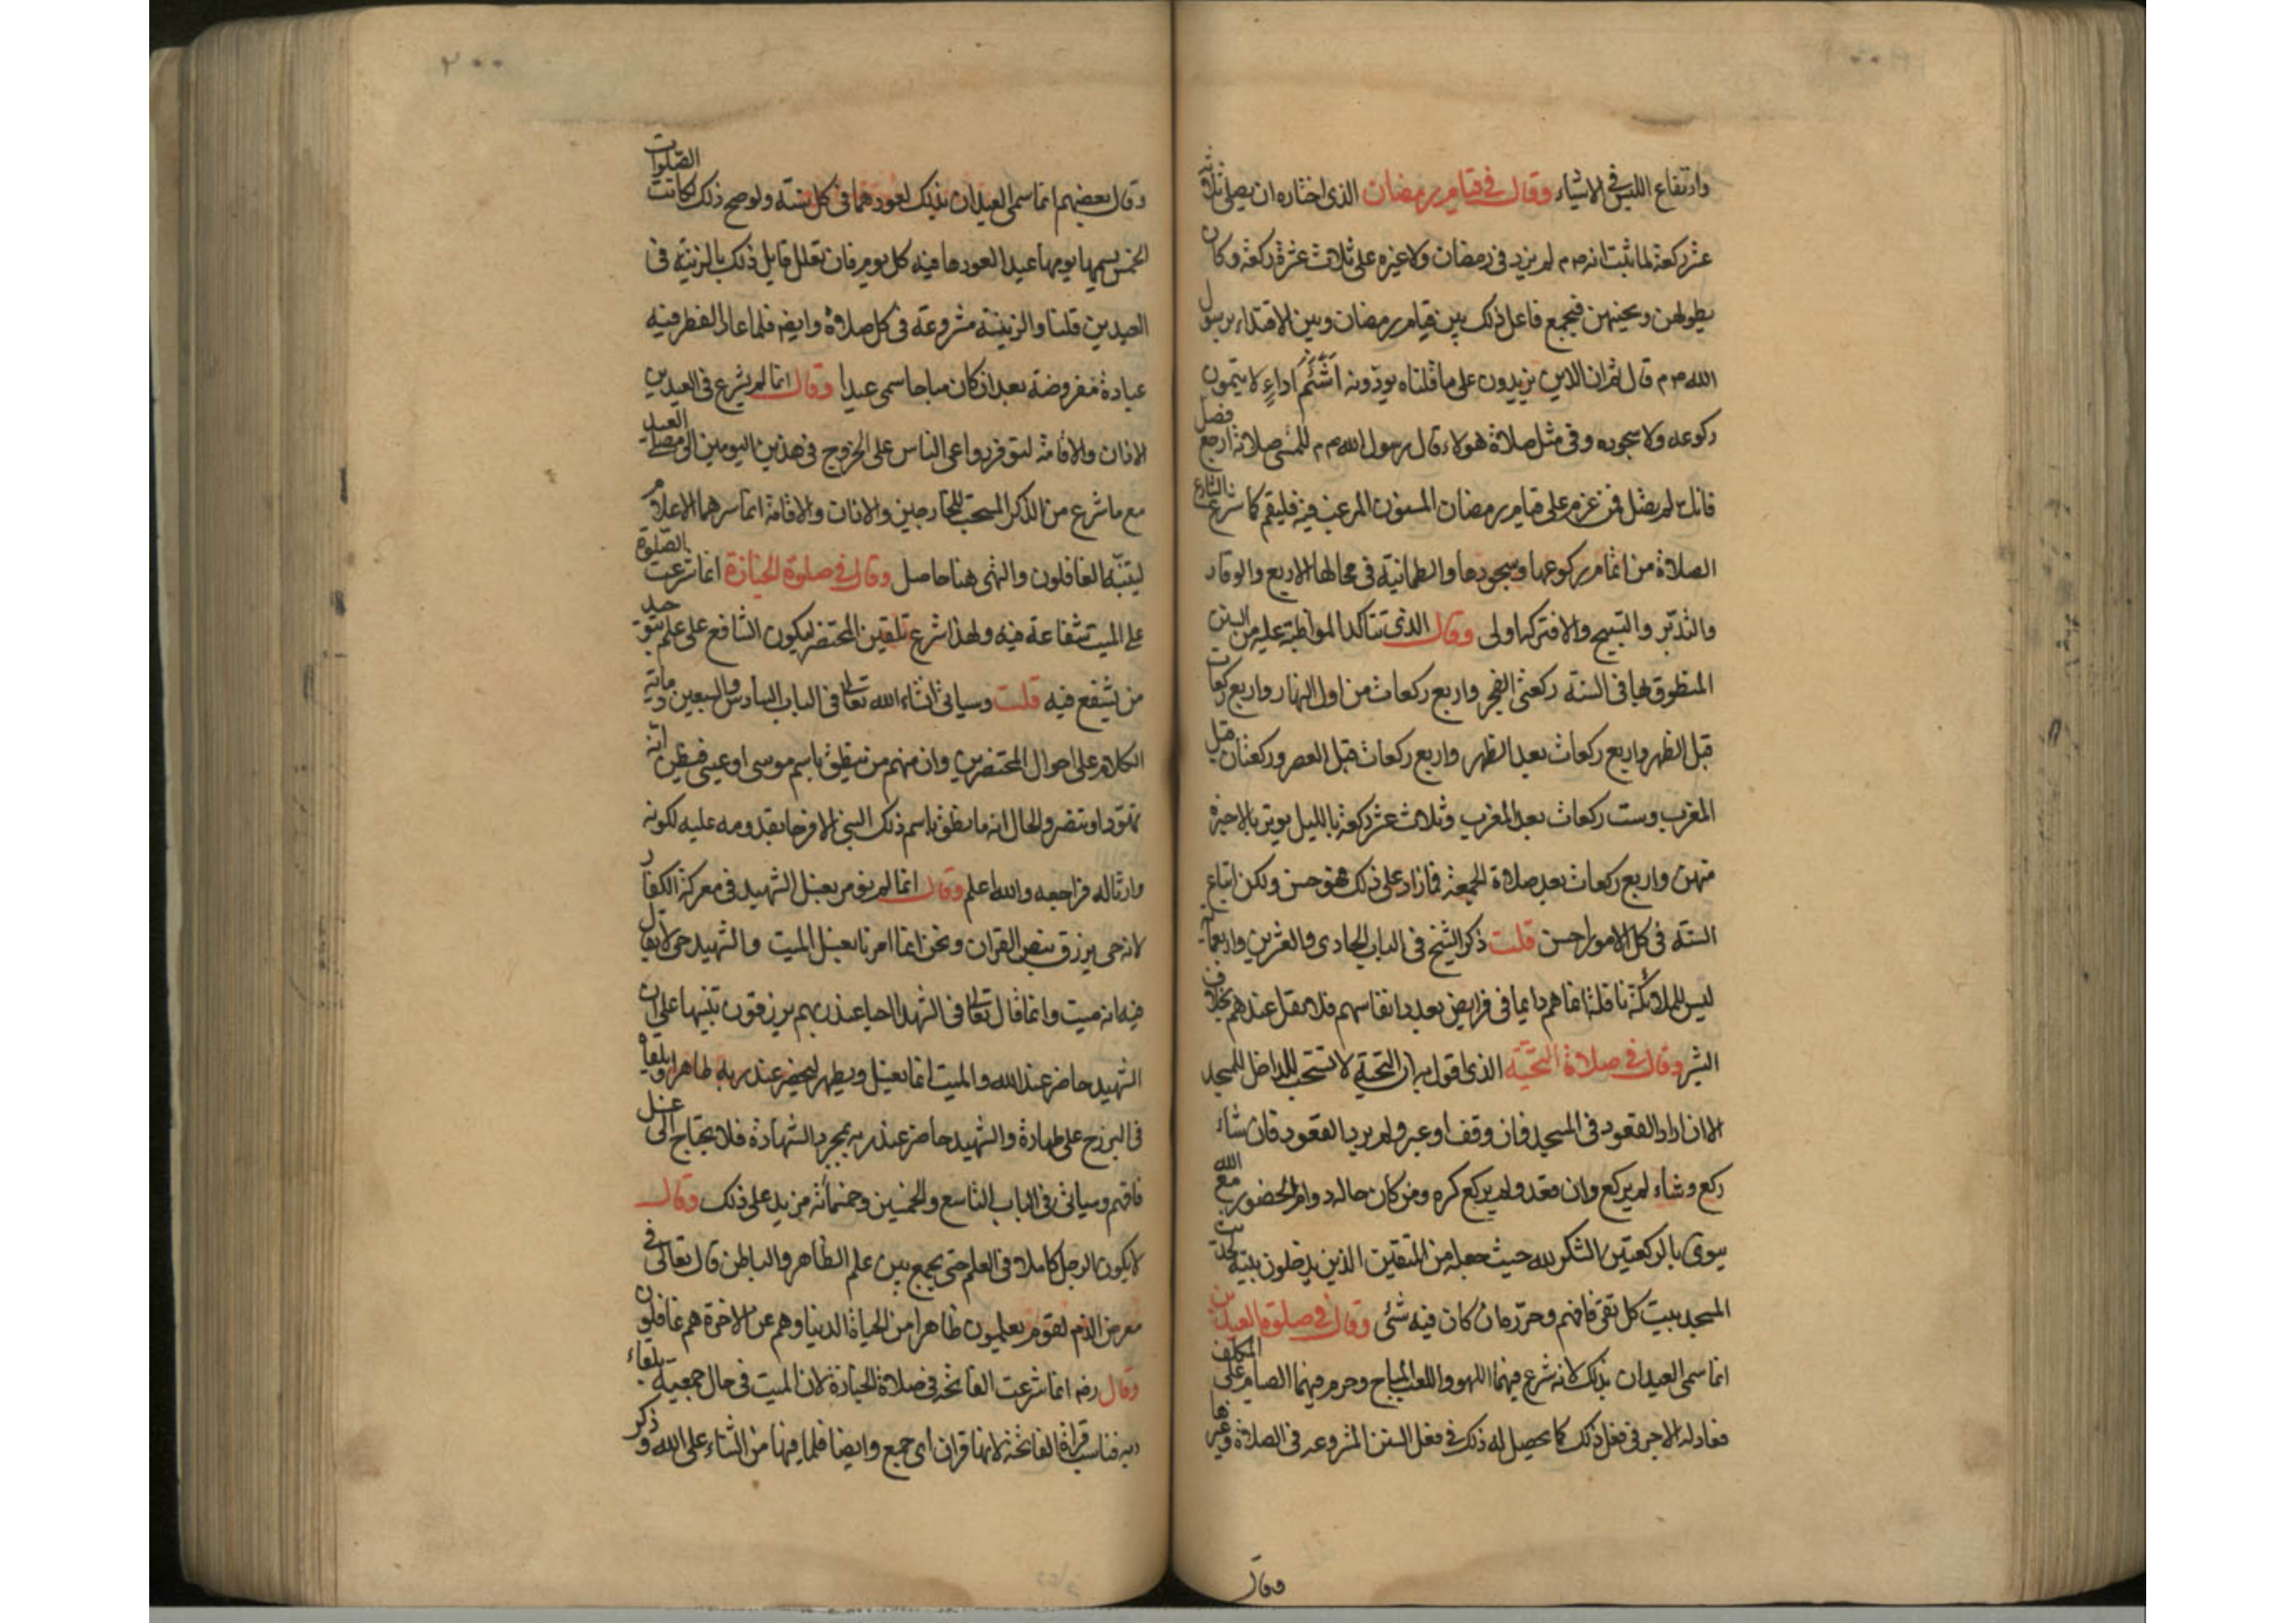 وارتفاع اللبس في الاشياء وقال في قيام رمضان الذي اختاره ان يصلي ثلاثة
عشر ركعة لما ثبت انه صم لم يزد في رمضان ولا غيره على ثلاث عشرة ركعة وكان
يطولهن ويحسنهن فيجمع فاعل ذلك بين قيام رمضان وبين الاقتداء برسول
الله صم قال ثم ان الذين يزيدون على ما قلناه يودونه اشئم اداء لا يتمون
ركوعه ولا سجوده وفي مثل صلاة هولاء قال رسول الله صم للمسئ صلاته ارجع فصل
فانك لم تصل فمن عزم على قيام رمضان المسنون المرغب فيه فليقم كما شرع الشارع
الصلاة من اتمام ركوعها وسجودها والطمانية في محالها الاربع والوقار
والتدبر والتسبيح والا فتركها اولى وقال الذي تتاكد المواظبة عليه من السنن
المنطوق بها في السنة ركعتي الفجر واربع ركعات من اول النهار واربع ركعات
قبل الظهر واربع ركعات بعد الظهر واربع ركعات قبل العصر وركعتان قبل
المغرب وست ركعات بعد المغرب وثلاث عشر ركعة بالليل يوتر بالاخيرة
منهن واربع ركعات بعد صلاة الجمعة فما زاد على ذلك فهو حسن ولكن اتباع
السنة في كل الامور احسن قلت ذكر الشيخ في الباب الحادي والعشرين واربعمائة
ليس للملائكة نافلة انما هم دايما في فرايض بعدد انفاسهم فلا نفل عندهم بخلاف
البشر وقال في صلاة التحية الذي اقول به ان التحية لا تستحب للداخل للمسجد
الا ان اراد القعود في المسجد فان وقف او عبر ولم يرد القعود فان شاء
ركع وشاء لم يركع وان قعد ولم يركع كره ومن كان حاله دوام الحضور مع الله
ينوي بالركعتين الشكر لله حيث جعله من المتقين الذين يدخلون بيته لحديث
المسجد بيت كل تقي فافهم وحرره فان كان فيه شئ وقال في صلوة العيدين
انما سمي العيدان بذلك لانه شرع فيهما اللهو واللعب المباح وحرم فيهما الصيام على المكلف
فعاد له الاجر في فعل ذلك كما يحصل له ذلك في فعل السنن المشروعه في الصلاة وغيرها
وقال
٢٠٠
وقال بعضهم انما سمي العيدان بذلك لعودهما في كل سنة ولو صح ذلك لكانت الصلوات
الخمس يسمى يومها عيدا لعودها فيه كل يوم فان تعلل قايل ذلك بالزينة في
العيدين قلنا والزينة مشروعة في كل صلاة وايض فلما عاد الفطر فيه
عبادة مفروضة بعد ان كان مباحا سمي عيدا وقال انما لم يشرع في العيدين
الاذان والاقامة لتوفر دواعي الناس على الخروج في هذين اليومين الى مصلى العيد
مع ما شرع من الذكر المستحب للخارجين والاذان والاقامة انما سرهما الاعلام
ليتنبه الغافلون والتهي هنا حاصل وقال في صلوة الجنازة انما شرعت الصلوة
على الميت شفاعة فيه ولهذا شرع تلقين المحتضر ليكون الشافع على علم بتوحيد
من يشفع فيه قلت وسياتي ان شاء الله تعالى في الباب السادس والسبعين ومائة
الكلام على احوال المحتضرين وان منهم من ينطق باسم موسى او عيسى فيظن انه
تهود او تنصر والحال انه ما نطق باسم ذلك النبي الا فرحا بقدومه عليه لكونه
وارثا له فراجعه والله اعلم وقال انما لم نومر بغسل الشهيد في معركة الكفار
لانه حي يرزق بنص القران ونحن انما امرنا بغسل الميت والشهيد حي لا يقال
فيه انه ميت وانما قال تعالى في الشهدا احيا عند ربهم يرزقون تنبيها على ان
الشهيد حاضر عند الله والميت انما يغسل ويطهر ليحضر عند ربه طاهرا ويلقاه
في البرزخ على طهارة والشهيد حاضر عند ربه بمجرد الشهادة فلا يحتاج الى غسل
فافهم وسياتي في الباب التاسع والخمسين وخمسمائة مزيد على ذلك وقال
لا يكون الرجل كاملا في العلم حتى يجمع بين علم الظاهر والباطن قال تعالى في
معرض الذم لقوم يعلمون ظاهرا من الحياة الدنيا وهم عن الاخرة هم غافلون
وقال رضه انما شرعت الفاتحة في صلاة الجنازة لان الميت في حال جمعية بلقاء
ربه فناسب قراة الفاتحة لانها قران اي جمع وايضا فلما فيها من الثناء على الله وذكر